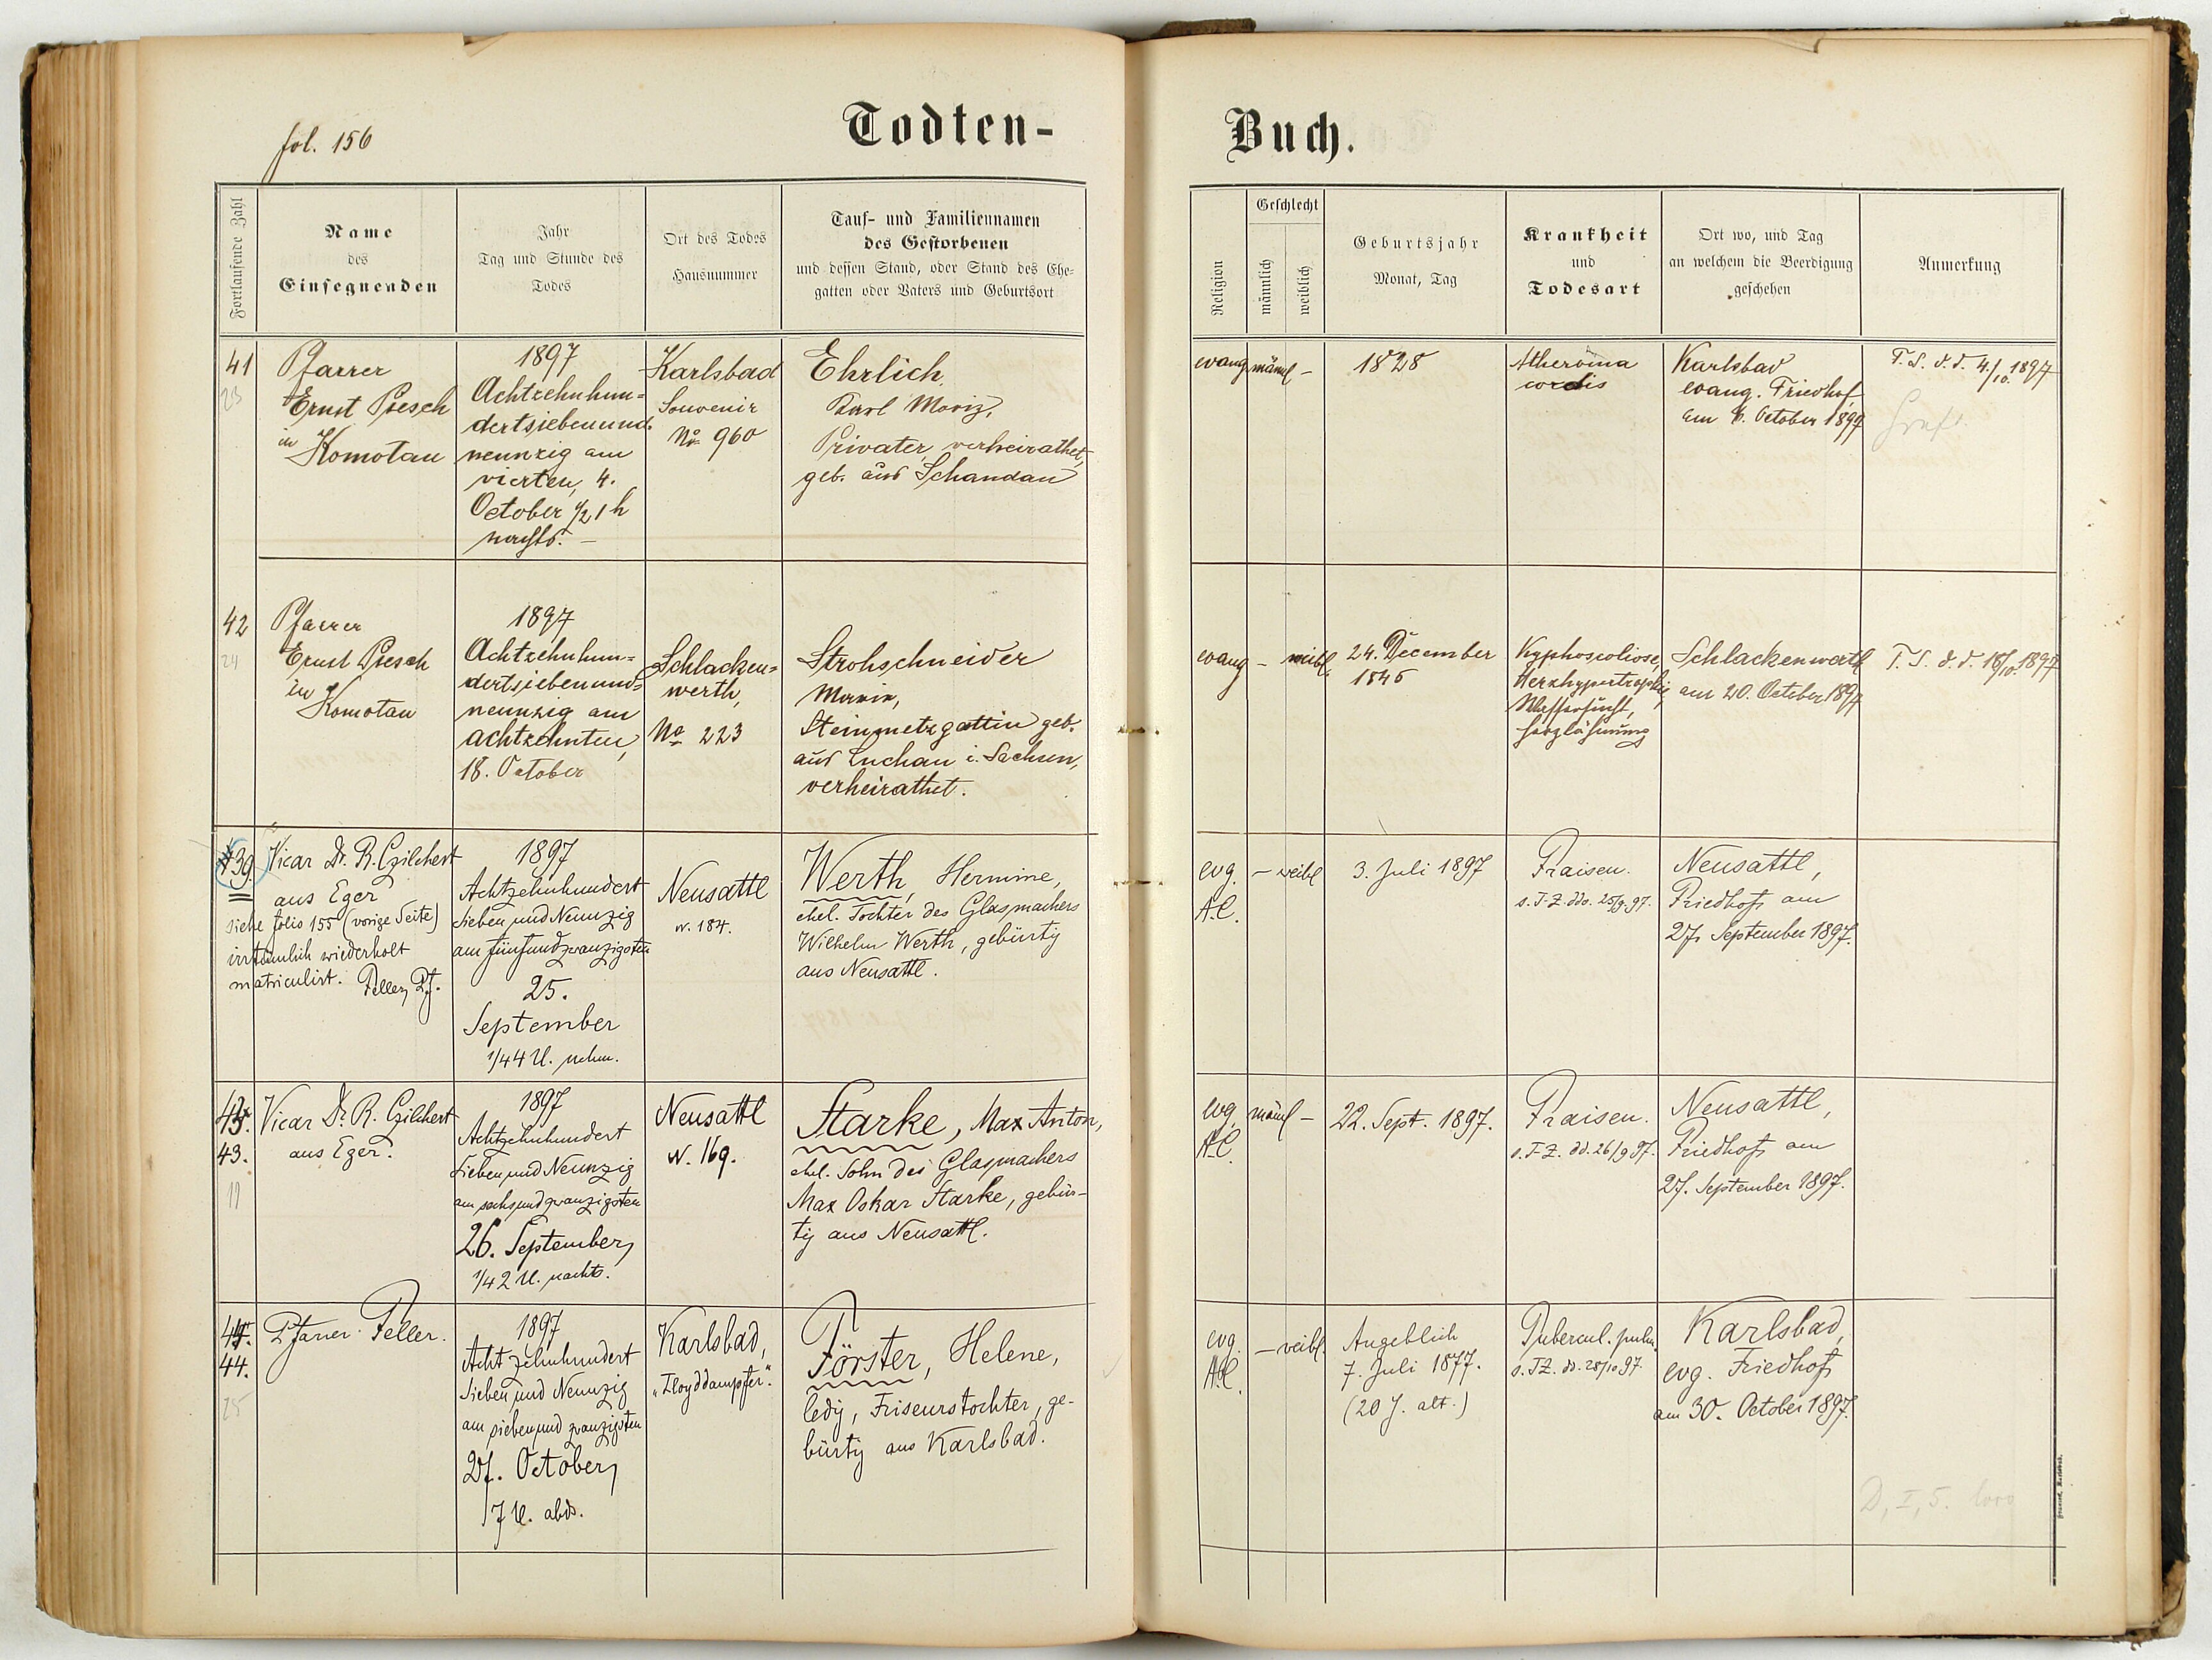 fol. 156
Todten-
Buch.
Fortlaufende Zahl
Name
des
Einsegnenden
Jahr
Tag und Stunde des
Todes
Ort des Todes
Hausnummer
Tauf- und Familiennamen
des Gestorbenen
und dessen Stand, oder Stand des Ehe-
gatten oder Vaters und Geburtsort
Religion
Geschlecht
männlich
weiblich
Geburtsjahr
Monat, Tag
Krankheit
und
Todesart
Ort wo, und Tag
an welchem die Beerdigung
geschehen
Anmerkung
41
23
Pfarrer
Ernst Piesch
in
Komotau
1897
Achtzehnhun-
dertsiebenund-
neunzig am
vierten, 4.
October 1/2 1 h
nachts. —
Karlsbad
Souvenir
No 960
Ehrlich,
Karl Moriz,
Privater, verheirathet,
geb. aus Schandau
evang
männl
–
1828
Atheroma
cordis
Karlsbad
evang. Friedhof
am 6. October 1897
T. S. d. d. 4/10. 1897
Gruft
42
24
Pfarrer
Ernst Piesch
in
Komotau
1897
Achtzehnhun-
dertsiebenund-
neunzig am
achtzehnten,
18. October
Schlacken-
werth,
No 223
Strohschneider
Maria,
Steinmetzgattin geb.
aus Luchau i. Sachsen,
verheirathet.
evang
–
weibl.
24. December
1846
Kyphoscoliose,
Herzhypertrophie,
Wassersucht,
Herzlähmung
Schlackenwerth
am 20. October 1897
T. S. d. d. 18/10. 1897
39.
Vicar Dr. R. Czilchert
aus Eger
siehe folio 155 (vorige Seite)
irrtümlich wiederholt
matriculirt. Feller, Pf.
1897
Achtzehnhundert
Sieben und Neunzig
am fünfundzwanzigsten
25.
September
1/4 4 U. nchm.
Neusattl
N. 184.
Werth, Hermine,
ehel. Tochter des Glasmachers
Wilhelm Werth, gebürtig
aus Neusattl.
evg.
A.C.
– weibl
3. Juli 1897
Fraisen.
s. T-Z. ddo. 25/9. 97.
Neusattl,
Friedhof, am
27. September 1897.
43.
43.
Vicar Dr. R. Czilchert
aus Eger.
1897
Achtzehnhundert
Sieben und Neunzig
am sechsundzwanzigsten
26. September,
1/4 2 U. nachts.
Neusattl
N. 169.
Starke, Max Anton,
ehel. Sohn des Glasmachers
Max Oskar Starke, gebür-
tig aus Neusattl.
evg.
A.C.
männl –
22. Sept. 1897.
Fraisen.
s. T-Z. dd. 26/9 97.
Neusattl,
Friedhof, am
27. September 1897.
44.
25
Pfarrer Feller.
1897
Achtzehnhundert
Sieben und Neunzig
am siebenundzwanzigsten
27. October,
7 U. abds.
Karlsbad,
"Lloyddampfer".
Förster, Helene,
ledig, Friseurstochter, ge-
bürtig aus Karlsbad.
evg.
A.C.
– weibl.
Angeblich
7. Juli 1877.
(20 J. alt.)
Tubercul. pulm.
s. TZ. dd. 28/10 97.
Karlsbad,
evg. Friedhof,
am 30. October 1897.
D, I, 5.